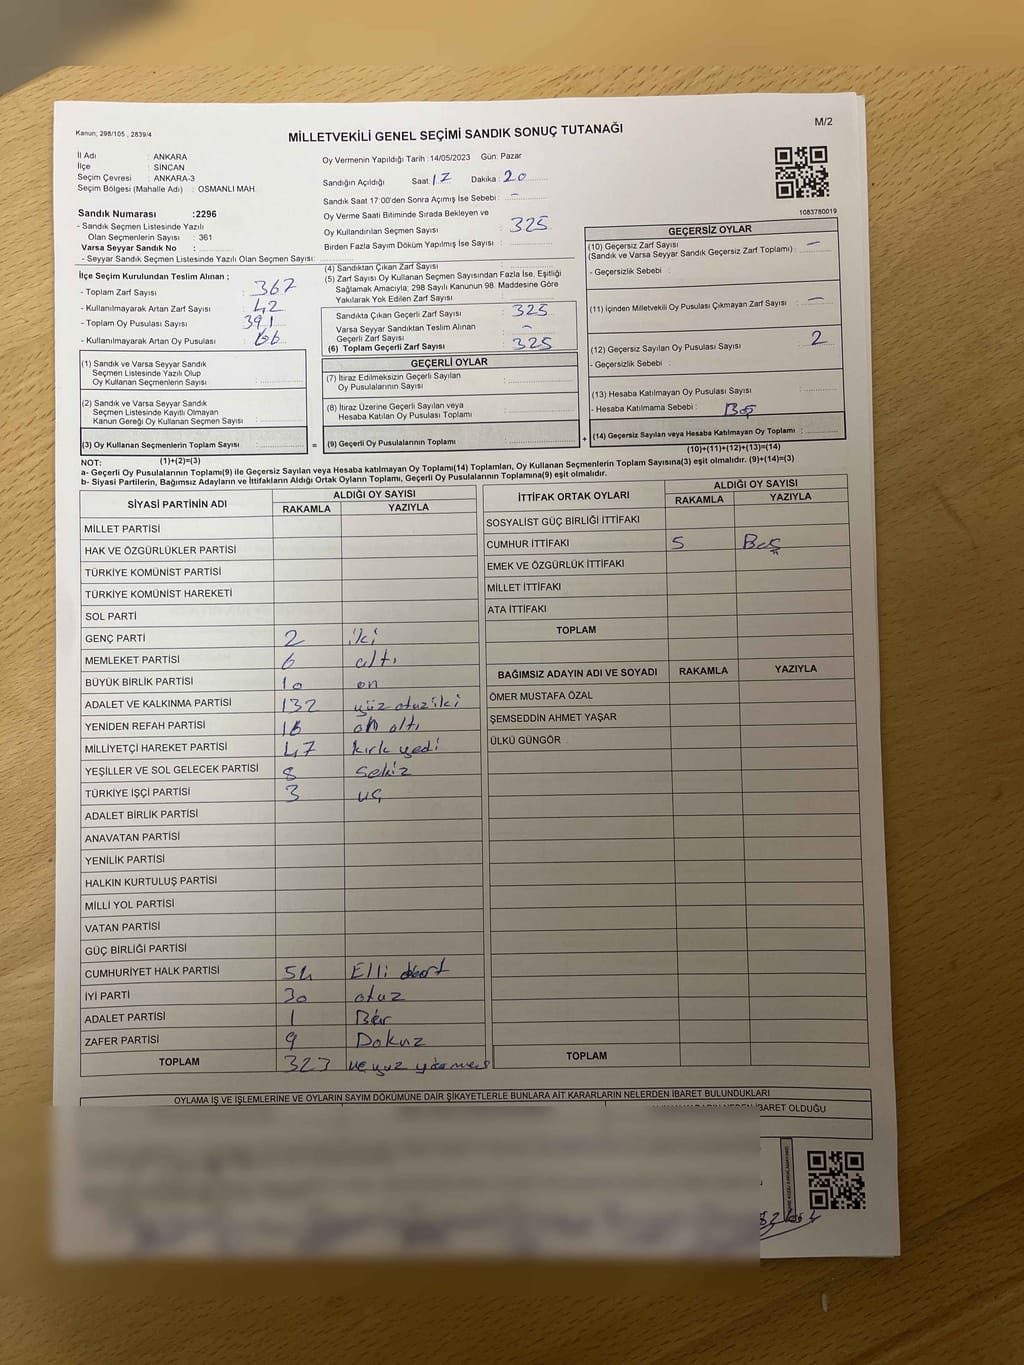 Kanun; 298/105 , 2839/4
M/2
MİLLETVEKİLİ GENEL SEÇİMİ SANDIK SONUÇ TUTANAĞI
İl Adı : ANKARA
İlçe : SİNCAN
Seçim Çevresi : ANKARA-3
Seçim Bölgesi (Mahalle Adı) : OSMANLI MAH.
Sandık Numarası :2296
- Sandık Seçmen Listesinde Yazılı
Olan Seçmenlerin Sayısı : 361
Varsa Seyyar Sandık No :
- Seyyar Sandık Seçmen Listesinde Yazılı Olan Seçmen Sayısı:
Oy Vermenin Yapıldığı Tarih :14/05/2023 Gün: Pazar
Sandığın Açıldığı Saat: 17 Dakika: 20
Sandık Saat 17:00'den Sonra Açımış İse Sebebi : -
Oy Verme Saati Bitiminde Sırada Bekleyen ve
Oy Kullandırılan Seçmen Sayısı : 325
Birden Fazla Sayım Döküm Yapılmış İse Sayısı :
1083780019
İlçe Seçim Kurulundan Teslim Alınan ;
- Toplam Zarf Sayısı : 367
- Kullanılmayarak Artan Zarf Sayısı : 42
- Toplam Oy Pusulası Sayısı : 391
- Kullanılmayarak Artan Oy Pusulası : 66
(1) Sandık ve Varsa Seyyar Sandık
Seçmen Listesinde Yazılı Olup
Oy Kullanan Seçmenlerin Sayısı :
(2) Sandık ve Varsa Seyyar Sandık
Seçmen Listesinde Kayıtlı Olmayan
Kanun Gereği Oy Kullanan Seçmen Sayısı :
(3) Oy Kullanan Seçmenlerin Toplam Sayısı :
(4) Sandıktan Çıkan Zarf Sayısı :
(5) Zarf Sayısı Oy Kullanan Seçmen Sayısından Fazla İse, Eşitliği
Sağlamak Amacıyla; 298 Sayılı Kanunun 98. Maddesine Göre
Yakılarak Yok Edilen Zarf Sayısı :
Sandıkta Çıkan Geçerli Zarf Sayısı : 325
Varsa Seyyar Sandıktan Teslim Alınan
Geçerli Zarf Sayısı : -
(6) Toplam Geçerli Zarf Sayısı : 325
GEÇERLİ OYLAR
(7) İtiraz Edilmeksizin Geçerli Sayılan
Oy Pusulalarının Sayısı :
(8) İtiraz Üzerine Geçerli Sayılan veya
Hesaba Katılan Oy Pusulası Toplamı :
= (9) Geçerli Oy Pusulalarının Toplamı :
GEÇERSİZ OYLAR
(10) Geçersiz Zarf Sayısı
(Sandık ve Varsa Seyyar Sandık Geçersiz Zarf Toplamı) : -
- Geçersizlik Sebebi :
(11) İçinden Milletvekili Oy Pusulası Çıkmayan Zarf Sayısı : -
(12) Geçersiz Sayılan Oy Pusulası Sayısı : 2
- Geçersizlik Sebebi :
(13) Hesaba Katılmayan Oy Pusulası Sayısı :
- Hesaba Katılmama Sebebi : Boş
+ (14) Geçersiz Sayılan veya Hesaba Katılmayan Oy Toplamı :
(10)+(11)+(12)+(13)=(14)
NOT: (1)+(2)=(3)
a- Geçerli Oy Pusulalarının Toplamı(9) ile Geçersiz Sayılan veya Hesaba katılmayan Oy Toplamı(14) Toplamları, Oy Kullanan Seçmenlerin Toplam Sayısına(3) eşit olmalıdır. (9)+(14)=(3)
b- Siyasi Partilerin, Bağımsız Adayların ve İttifakların Aldığı Ortak Oyların Toplamı, Geçerli Oy Pusulalarının Toplamına(9) eşit olmalıdır.
SİYASİ PARTİNİN ADI
ALDIĞI OY SAYISI
RAKAMLA YAZIYLA
MİLLET PARTİSİ
HAK VE ÖZGÜRLÜKLER PARTİSİ
TÜRKİYE KOMÜNİST PARTİSİ
TÜRKİYE KOMÜNİST HAREKETİ
SOL PARTİ
GENÇ PARTİ 2 iki
MEMLEKET PARTİSİ 6 altı
BÜYÜK BİRLİK PARTİSİ 10 on
ADALET VE KALKINMA PARTİSİ 132 yüz otuz iki
YENİDEN REFAH PARTİSİ 16 on altı
MİLLİYETÇİ HAREKET PARTİSİ 47 kırk yedi
YEŞİLLER VE SOL GELECEK PARTİSİ 8 sekiz
TÜRKİYE İŞÇİ PARTİSİ 3 uç
ADALET BİRLİK PARTİSİ
ANAVATAN PARTİSİ
YENİLİK PARTİSİ
HALKIN KURTULUŞ PARTİSİ
MİLLİ YOL PARTİSİ
VATAN PARTİSİ
GÜÇ BİRLİĞİ PARTİSİ
CUMHURİYET HALK PARTİSİ 54 Elli dört
İYİ PARTİ 30 otuz
ADALET PARTİSİ 1 Bir
ZAFER PARTİSİ 9 Dokuz
TOPLAM 323
İTTİFAK ORTAK OYLARI
ALDIĞI OY SAYISI
RAKAMLA YAZIYLA
SOSYALİST GÜÇ BİRLİĞİ İTTİFAKI
CUMHUR İTTİFAKI 5 Beş
EMEK VE ÖZGÜRLÜK İTTİFAKI
MİLLET İTTİFAKI
ATA İTTİFAKI
TOPLAM
BAĞIMSIZ ADAYIN ADI VE SOYADI RAKAMLA YAZIYLA
ÖMER MUSTAFA ÖZAL
ŞEMSEDDİN AHMET YAŞAR
ÜLKÜ GÜNGÖR
TOPLAM
OYLAMA İŞ VE İŞLEMLERİNE VE OYLARIN SAYIM DÖKÜMÜNE DAİR ŞİKAYETLERLE BUNLARA AİT KARARLARIN NELERDEN İBARET BULUNDUKLARI
İBARET OLDUĞU